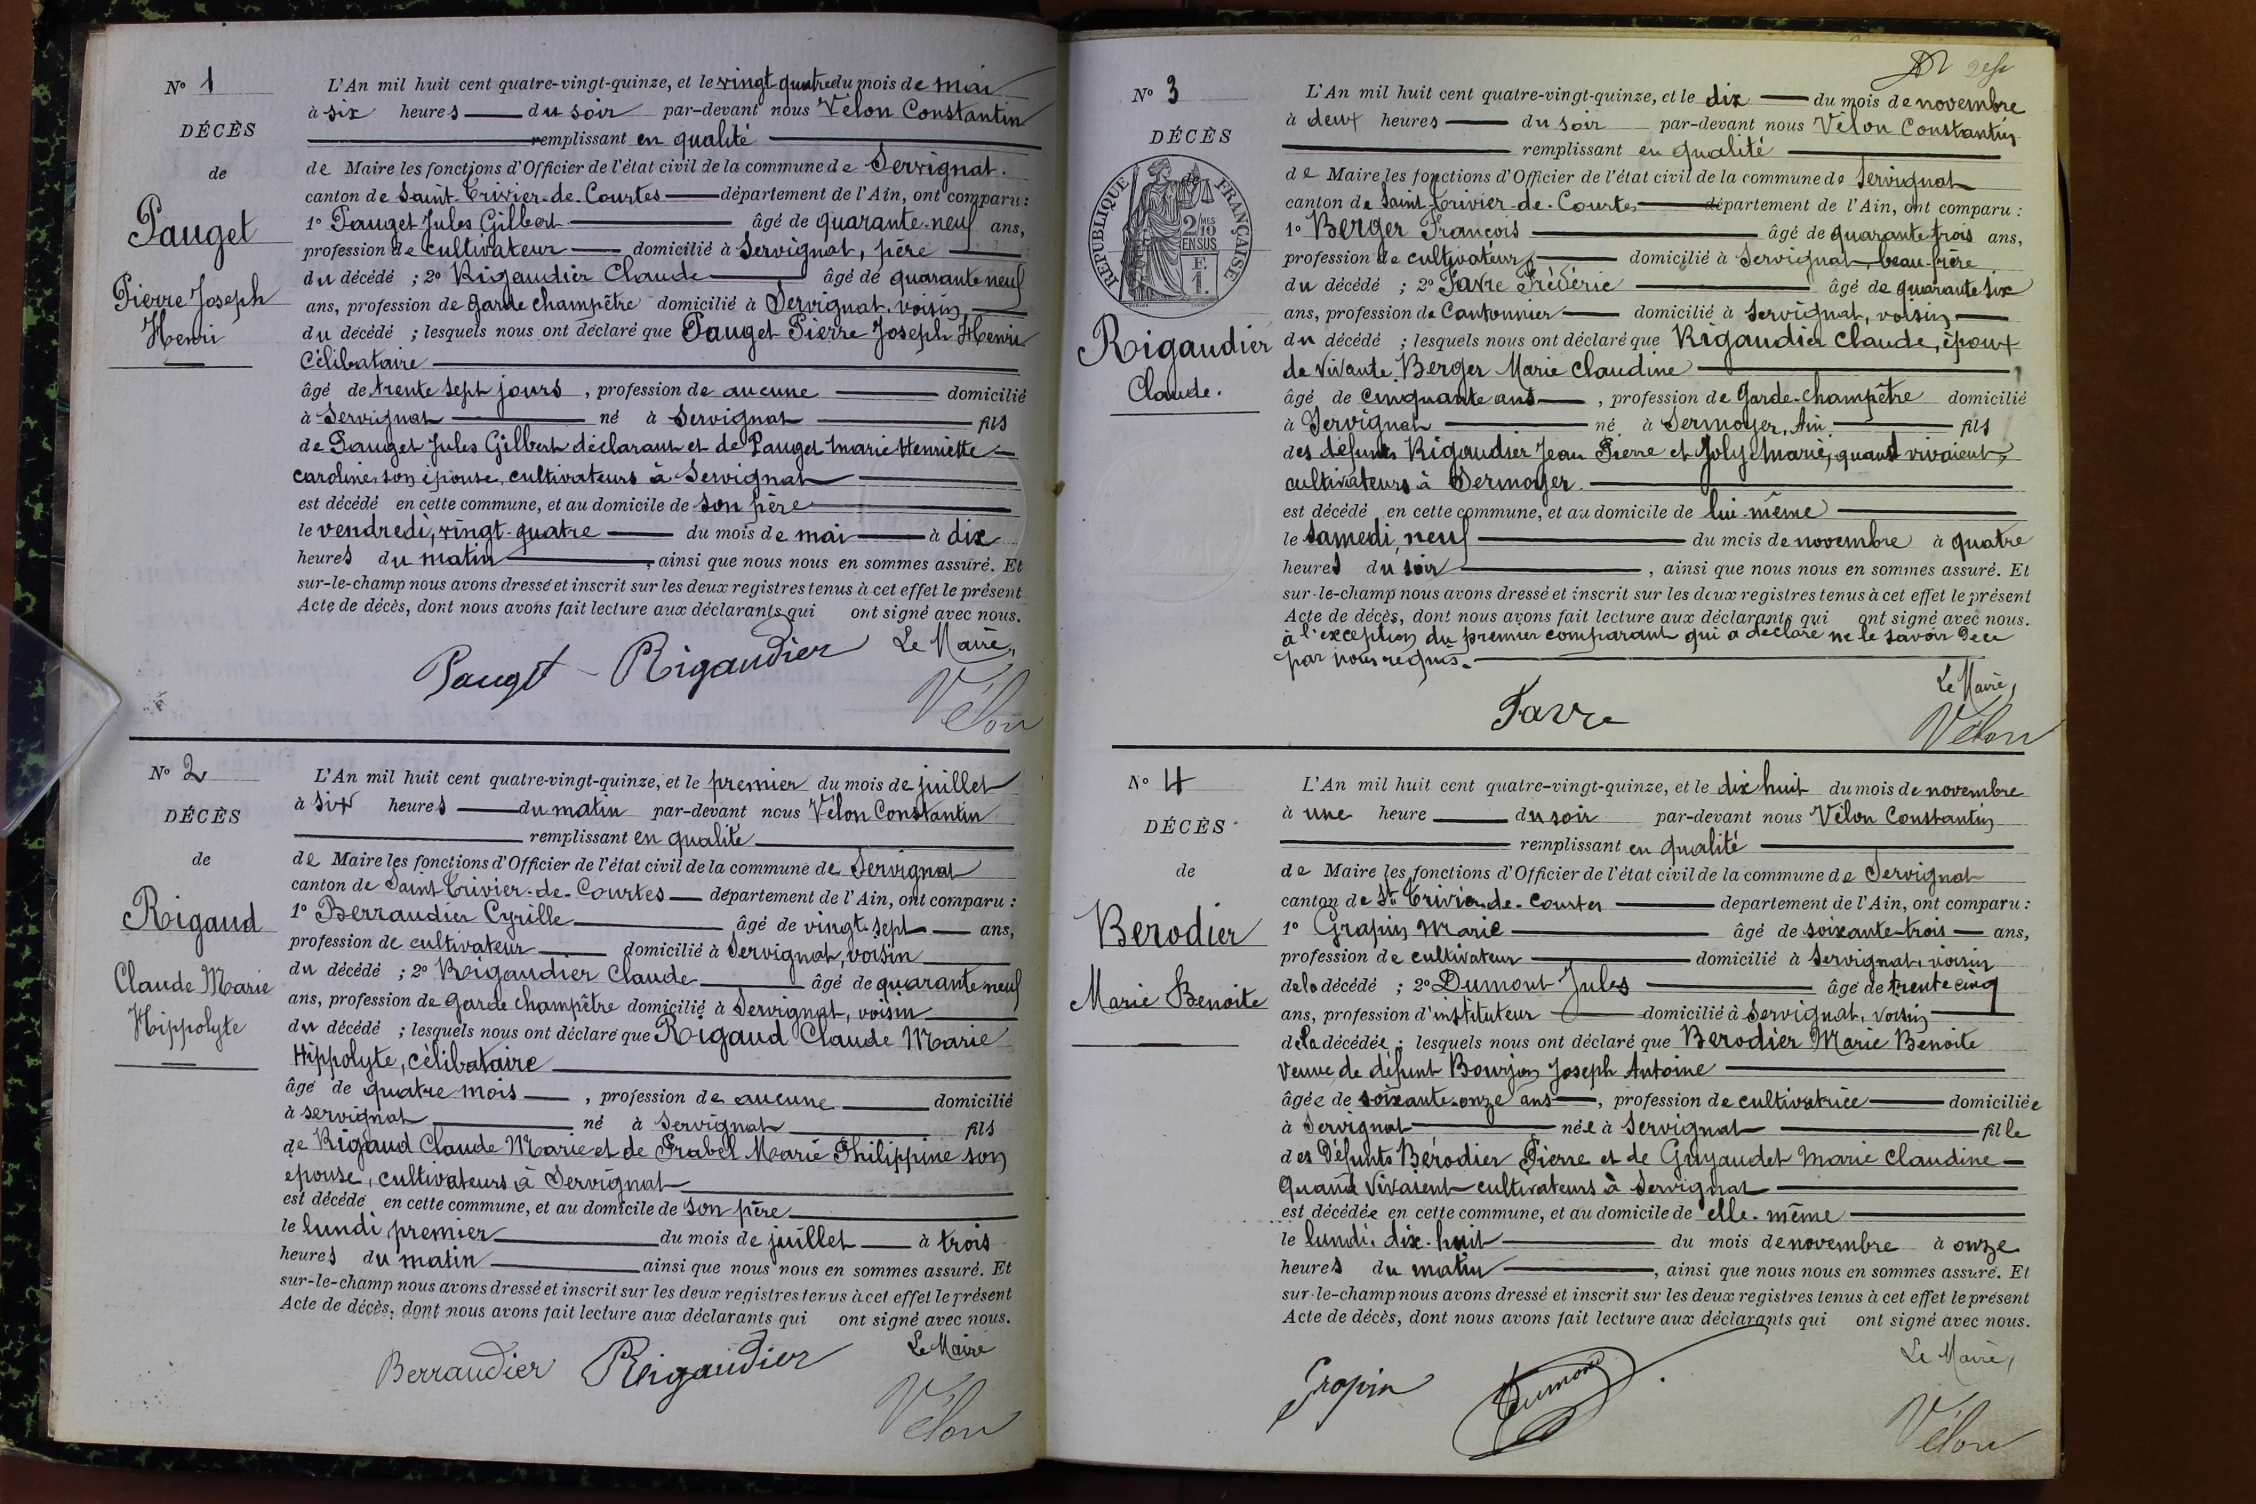 N° 1
DÉCÈS
de
Pauget
Pierre Joseph
Henri
L'An mil huit cent quatre-vingt-quinze, et le vingt quatre du mois de mai
à six heures du soir par-devant nous Vélon Constantin
remplissant en qualité
de Maire les fonctions d'Officier de l'état civil de la commune de Servignat.
canton de Saint-Trivier-de-Courtes département de l'Ain, ont comparu :
1° Pauget Jules Gilbert âgé de quarante-neuf ans,
profession de cultivateur domicilié à Servignat, père
du décédé ; 2° Rigaudier Claude âgé de quarante neuf
ans, profession de garde champêtre domicilié à Servignat, voisin
du décédé ; lesquels nous ont déclaré que Pauget Pierre Joseph Henri
Célibataire
âgé de trente sept jours , profession de aucune domicilié
à Servignat né à Servignat fils
de Pauget Jules Gilbert déclarant et de Pauget Marie Henriette
Caroline, son épouse, cultivateurs à Servignat
est décédé en cette commune, et au domicile de son père
le vendredi, vingt-quatre du mois de mai à dix
heures du matin , ainsi que nous nous en sommes assuré. Et
sur-le-champ nous avons dressé et inscrit sur les deux registres tenus à cet effet le présent
Acte de décès, dont nous avons fait lecture aux déclarants qui ont signé avec nous.
Le Maire,
Pauget Rigaudier
Vélon
N° 2
DÉCÈS
de
Rigaud
Claude Marie
Hippolyte
L'An mil huit cent quatre-vingt-quinze, et le premier du mois de juillet
à six heures du matin par-devant nous Vélon Constantin
remplissant en qualité
de Maire les fonctions d'Officier de l'état civil de la commune de Servignat
canton de Saint Trivier-de-Courtes département de l'Ain, ont comparu :
1° Berraudier Cyrille âgé de vingt-sept ans,
profession de cultivateur domicilié à Servignat, voisin
du décédé ; 2° Rigaudier Claude âgé de quarante neuf
ans, profession de garde champêtre domicilié à Servignat, voisin
du décédé ; lesquels nous ont déclaré que Rigaud Claude Marie
Hippolyte, célibataire
âgé de quatre mois , profession de aucune domicilié
à Servignat né à Servignat fils
de Rigaud Claude Marie et de Prabel Marie Philippine son
epouse, cultivateurs à Servignat
est décédé en cette commune, et au domicile de son père
le lundi premier du mois de juillet à trois
heures du matin ainsi que nous nous en sommes assuré. Et
sur-le-champ nous avons dressé et inscrit sur les deux registres tenus à cet effet le présent
Acte de décès, dont nous avons fait lecture aux déclarants qui ont signé avec nous.
Le Maire
Berraudier Rigaudier
Vélon
N° 3
DÉCÈS
de
RÉPUBLIQUE FRANÇAISE
2/10
MES
EN SUS
F.
1.
Rigaudier
Claude.
L'An mil huit cent quatre-vingt-quinze, et le dix du mois de novembre
à deux heures du soir par-devant nous Vélon Constantin
remplissant en qualité
de Maire les fonctions d'Officier de l'état civil de la commune de Servignat
canton de Saint-Trivier-de-Courtes département de l'Ain, ont comparu :
1° Berger François âgé de quarante trois ans,
profession de cultivateur domicilié à Servignat, beau-frère
du décédé ; 2° Favre Frédéric âgé de quarante six
ans, profession de Cantonnier domicilié à Servignat, voisin
du décédé ; lesquels nous ont déclaré que Rigaudier Claude, époux
de vivante Berger Marie Claudine
âgé de cinquante ans , profession de Garde-champêtre domicilié
à Servignat né à Sermoyer, Ain fils
des défunts Rigaudier Jean Pierre et Joly Marie, quand vivaient,
cultivateurs à Sermoyer.
est décédé en cette commune, et au domicile de lui-même
le samedi, neuf du mois de novembre à quatre
heures du soir , ainsi que nous nous en sommes assuré. Et
sur-le-champ nous avons dressé et inscrit sur les deux registres tenus à cet effet le présent
Acte de décès, dont nous avons fait lecture aux déclarants qui ont signé avec nous.
à l'exception du premier comparant qui a déclaré ne le savoir de ce
par nous requis.
Le Maire,
Favre
Vélon
N° 4
DÉCÈS
de
Berodier
Marie Benoite
L'An mil huit cent quatre-vingt-quinze, et le dix huit du mois de novembre
à une heure du soir par-devant nous Vélon Constantin
remplissant en qualité
de Maire les fonctions d'Officier de l'état civil de la commune de Servignat
canton de St Trivier-de-Courtes département de l'Ain, ont comparu :
1° Grapin Marie âgé de soixante-trois ans,
profession de cultivateur domicilié à Servignat, voisin
de la décédé ; 2° Dumont Jules âgé de trente cinq
ans, profession d'instituteur domicilié à Servignat, voisin
de la décédée ; lesquels nous ont déclaré que Berodier Marie Benoite
veuve de défunt Bourjon Joseph Antoine
âgée de soixante-onze ans , profession de cultivatrice domiciliée
à Servignat née à Servignat fille
des défunts Bérodier Pierre et de Guyaudet Marie Claudine
Quand vivaient cultivateurs à Servignat
est décédée en cette commune, et au domicile de elle-même
le lundi dix-huit du mois de novembre à onze
heures du matin , ainsi que nous nous en sommes assuré. Et
sur-le-champ nous avons dressé et inscrit sur les deux registres tenus à cet effet le présent
Acte de décès, dont nous avons fait lecture aux déclarants qui ont signé avec nous.
Le Maire,
Grapin Dumont
Vélon